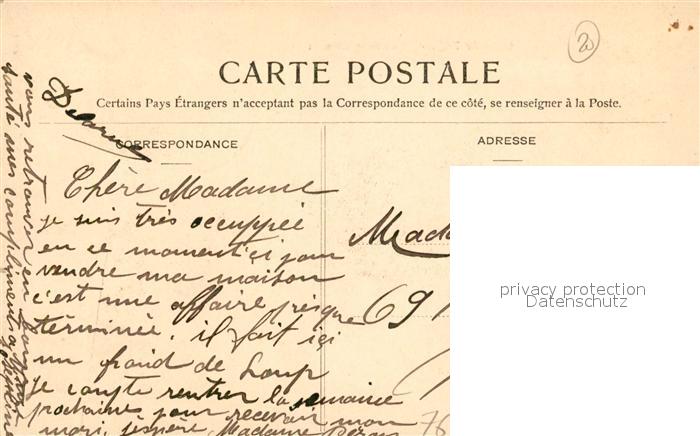 20
CARTE POSTALE
Certains Pays Étrangers n'acceptent pas la Correspondance de ce côté, se renseigner à la Poste.
CORRESPONDANCE
ADRESSE
Chère Madame
je suis très occuppée
en ce moment ici pour
vendre ma maison
c'est une affaire presque
terminée. il fait içi
un froid de Loup
je compte rentrer la semaine
prochaine pour recevoir mon
mari, j'espère Madame
vous retrouver en bonne
santé mes compliments a
Mada
69
76
privacy protection
Datenschutz